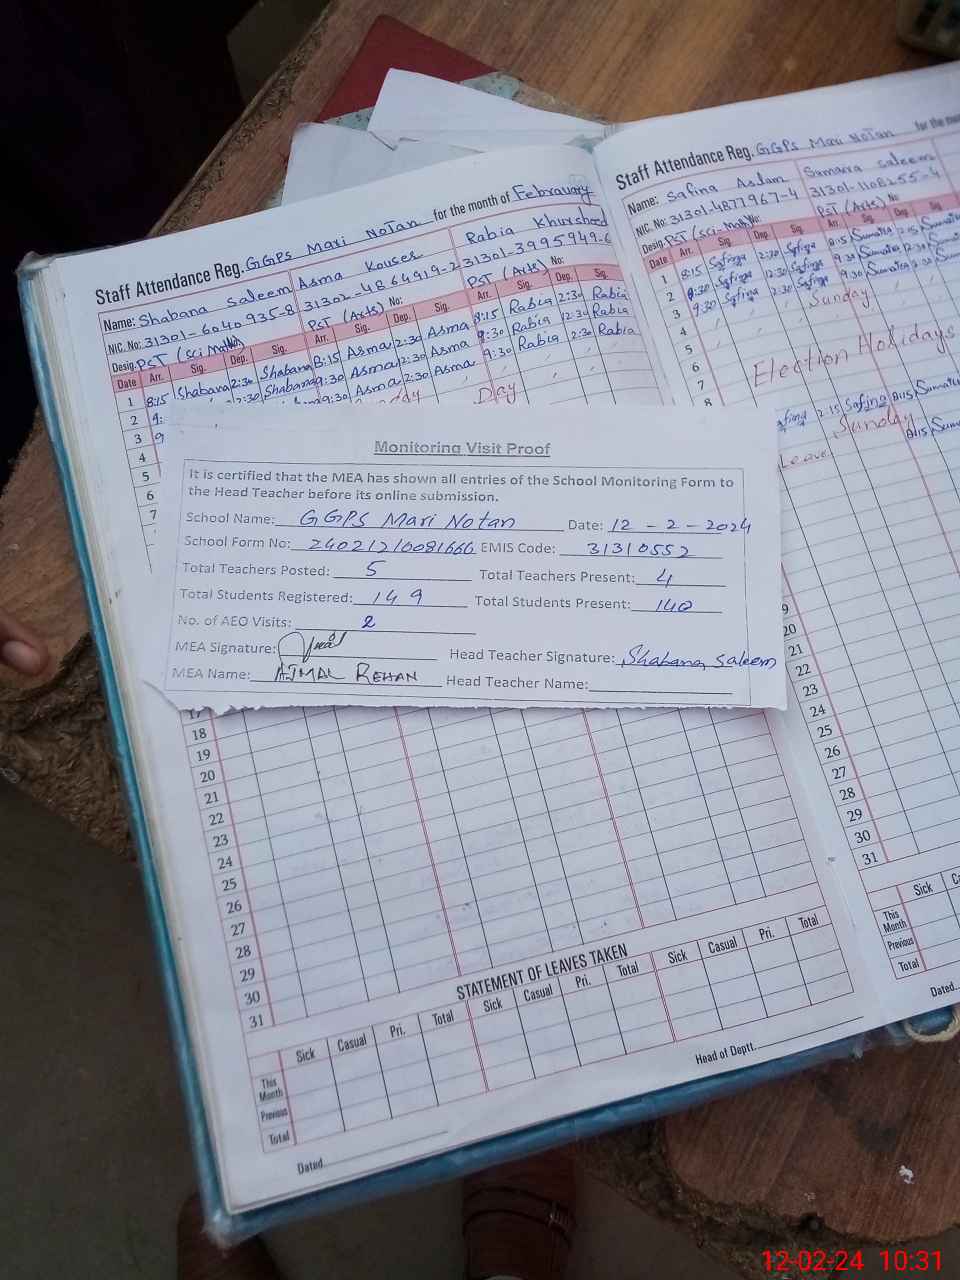 Staff Attendance Reg. GGPS Mari Notan for the month of Febrauary
Name: Shabana Saleem Asma Kouser Rabia Khursheed
NIC. No: 31301-6040935-8 31302-4864919-2 31301-3995949-6
Desig. PST (Sci-Math) No: PST (Arts) No: PST (Arts) No:
Date Arr. Sig. Dep. Sig. Arr. Sig. Dep. Sig. Arr. Sig. Dep. Sig.
1 8:15 Shabana 2:30 Shabana 8:15 Asma 2:30 Asma 8:15 Rabia 2:30 Rabia
2 9: 12:30 Shabana 9:30 Asma 12:30 Asma 9:30 Rabia 12:30 Rabia
3 9 9:30 Asma 2:30 Asma 9:30 Rabia 2:30 Rabia
4 Day
5
6
7
Monitoring Visit Proof
It is certified that the MEA has shown all entries of the School Monitoring Form to
the Head Teacher before its online submission.
School Name: GGPS Mari Notan Date: 12-2-2024
School Form No: 24021210081666 EMIS Code: 31310552
Total Teachers Posted: 5 Total Teachers Present: 4
Total Students Registered: 149 Total Students Present: 140
No. of AEO Visits: 2
MEA Signature: Head Teacher Signature: Shabana Saleem
MEA Name: AJMAL REHAN Head Teacher Name:
17
18
19
20
21
22
23
24
25
26
27
28
29
30
31
STATEMENT OF LEAVES TAKEN
Sick Casual Pri. Total Sick Casual Pri. Total Sick Casual Pri. Total
This Month
Previous
Total
Head of Deptt.
Dated
Staff Attendance Reg. GGPS Mari Notan for the mon
Name: Safina Aslam Sumaira Saleem
NIC. No: 31301-4877967-4 31301-1108255-4
Desig. PST (Sci-Math) No: PST (Arts) No
Date Arr. Sig. Dep. Sig. Arr. Sig. Dep. Sig.
1 8:15 Safina 2:30 Safina 8:15 Sumaira 2:15 Sumaira
2 9:30 Safina 12:30 Safina 9:30 Sumaira 12:30 Sumaira
3 9:30 Safina 2:30 Safina 9:30 Sumaira
4 Sunday
5
6
7 Election Holidays
8
Safina 2:15 Safina 8:15 Sumaira
Sunday
Leave 8:15 Sum
9
20
21
22
23
24
25
26
27
28
29
30
31
Sick
This Month
Previous
Total
Dated
12-02-24 10:31